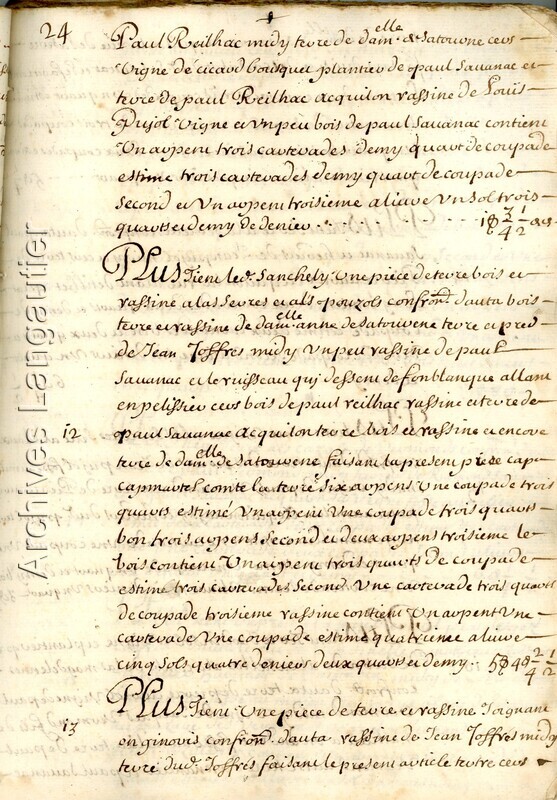 24
Paul Reilhac midy terre de dam.elle de Latourene cers
vigne de cicard bousquet plantier de paul Savanac et
terre de paul Reilhac acquilon vassine de Louis
Pujol vigne et un peu bois de paul Savanac contient
Un arpent trois carterades demy quart de coupade
estime trois carterades demy quart de coupade
second et un arpent troisieme alivre un sol trois
quarts et demy de denier
PLUS Tient led. Sanchely une piece de terre bois et
vassine a las serres et als pouzols confron.t d'auta bois
terre et vassine de dam.elle anne de Latourene terre et pred
de Jean Joffres midy un peu vassine de paul
Savanac et le ruisseau qui dessent de fonblanque allant
en pelissier cers bois de paul reilhac vassine et terre de
12 paul Savanac acquilon terre bois et vassine et encore
terre de dam.elle de Latourene faisant la present piece cap
capmartel comte la terre six arpens une coupade trois
quarts estimé un arpent une coupade trois quarts
bon trois arpens second et deux arpens troisieme le
bois contient un arpent trois quarts de coupade
estime trois carterades second une carterade trois quarts
de coupade troisieme vassine contient un arpent une
carterade une coupade estime quatrieme alivre
cinq sols quatre deniers deux quarts et demy
PLUS Tient une piece de terre et vassine Joignant
13 on ginouis confron.t d'auta vassine de Jean Joffres midy
terre dud. Joffres faisant le present article terre cers
Archives Langautier